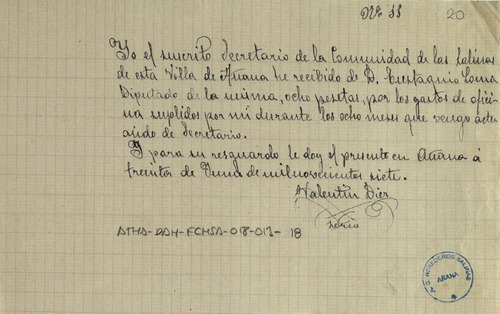 Nº 11 20
Yo el suscrito Secretario de la Comunidad de las Salinas
de esta Villa de Añana he recibido de D. Eustaquio
Diputado de la misma, ocho pesetas, por los gastos de ofici-
na suplidos por mi durante los ocho meses que vengo actu-
ando de Secretario.
Y para su resguardo le doy el presente en Añana á
treinta de Junio de mil novecientos siete.
Valentin
ATHA-DAH-FCHSA-018-012- 18
HEREDEROS SALINAS
AÑANA